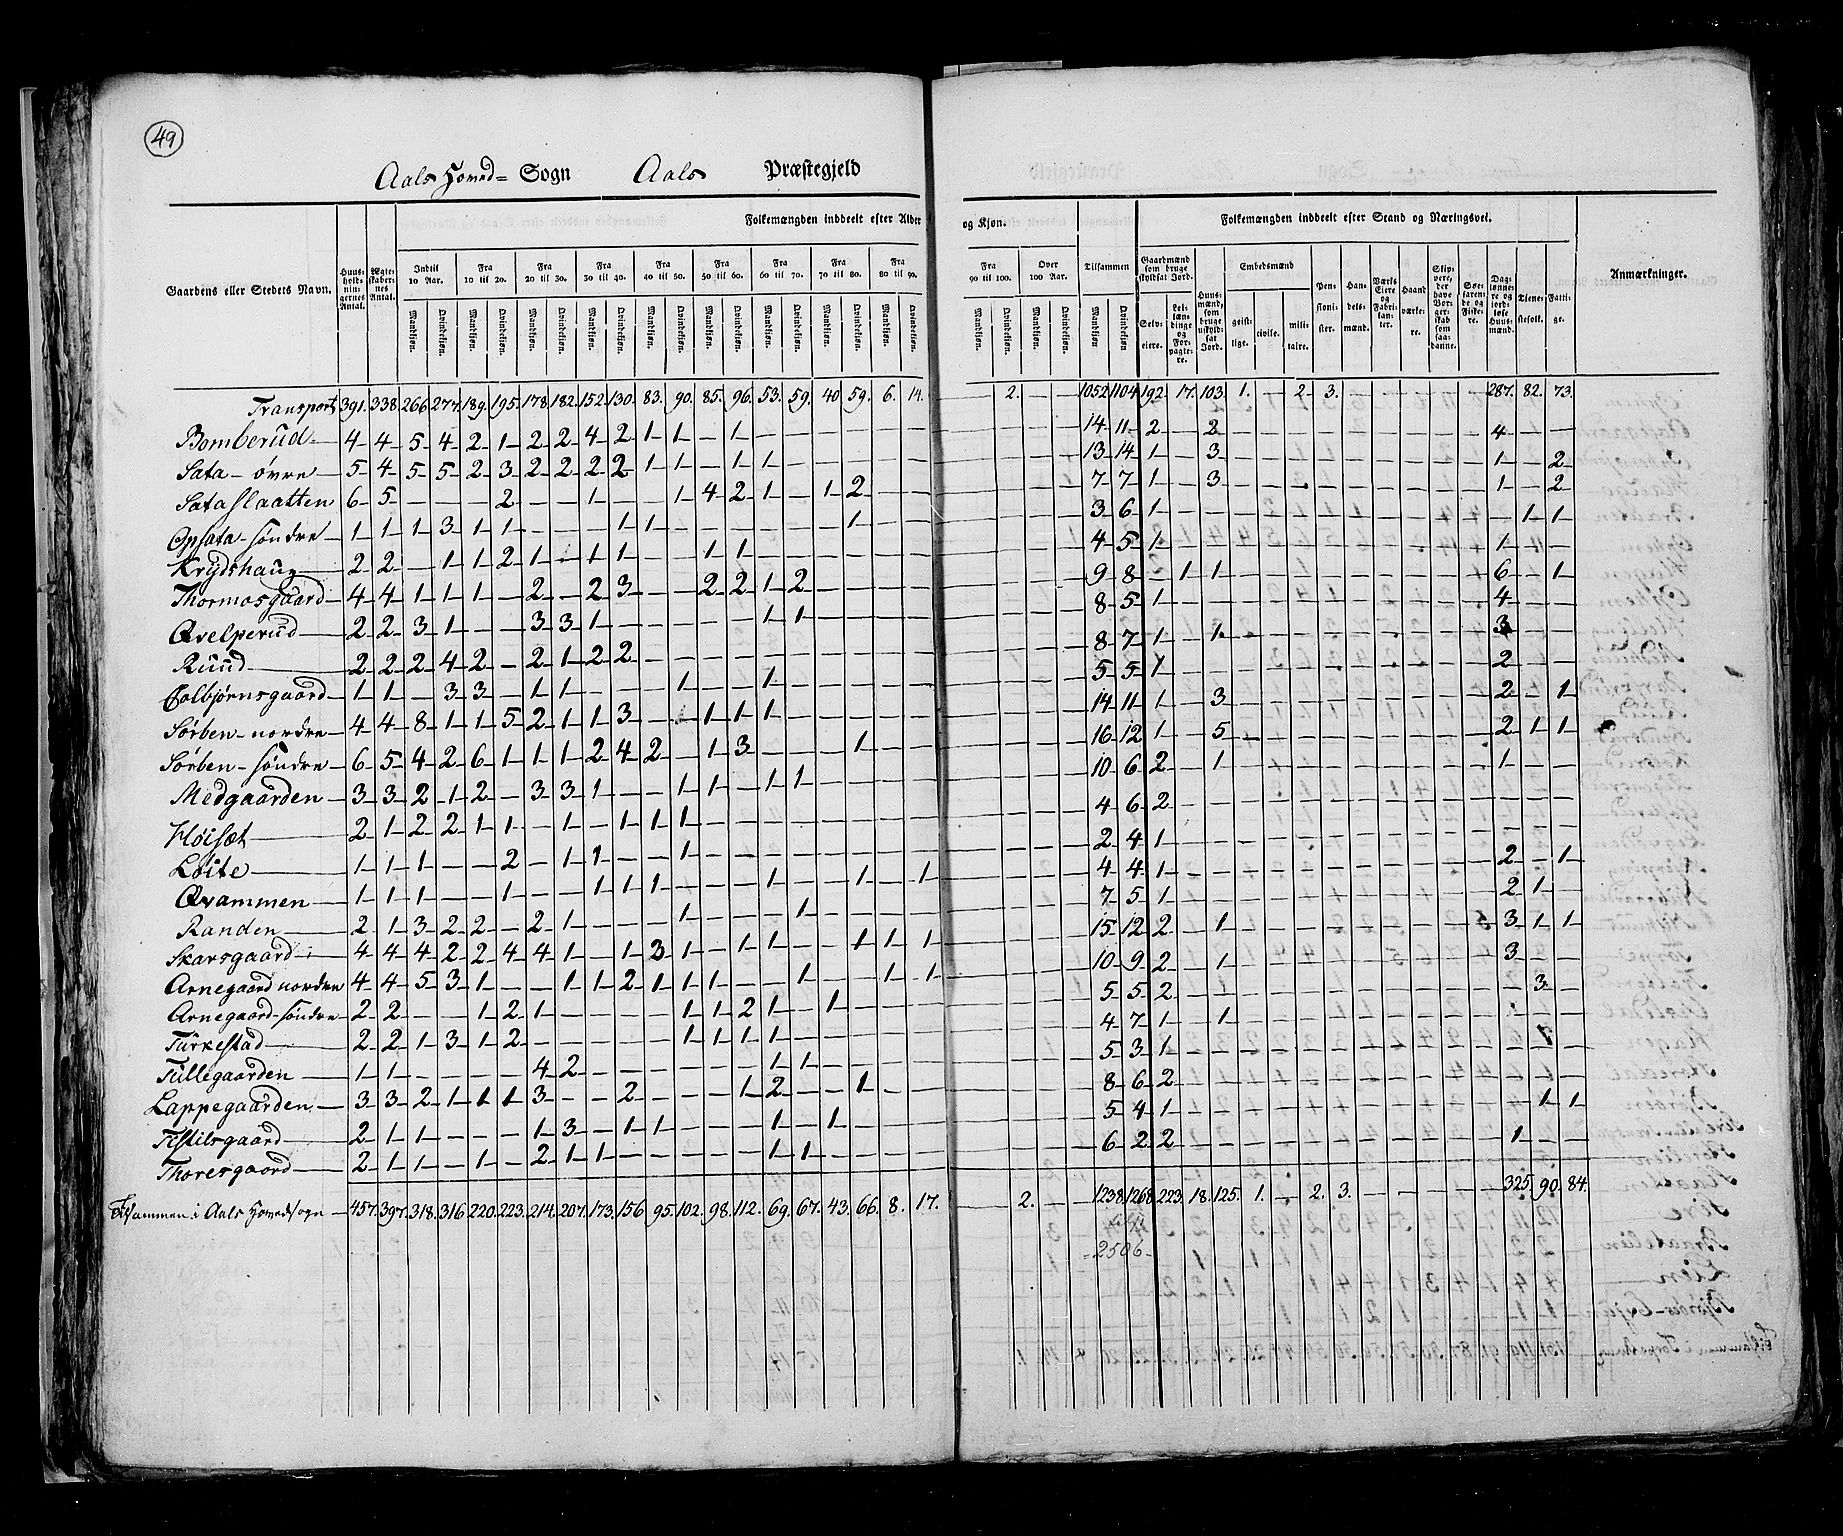 49
Aals Hoved= Sogn Aals Præstegjeld
Gaardens eller Stedets Navn. Huusholdningernes Antal. Ægteskabernes Antal. Folkemængden inddeelt efter Alder og Kjøn. Tilsammen Folkemængden inddeelt efter Stand og Næringsvei. Anmærkninger.
Indtil 10 Aar. Fra 10 til 20. Fra 20 til 30. Fra 30 til 40. Fra 40 til 50. Fra 50 til 60. Fra 60 til 70. Fra 70 til 80. Fra 80 til 90. Fra 90 til 100. Over 100 Aar.
Mandkjøn. Qvindekjøn.
Gaardmænd som bruge skyldsat Jord. Selveiere. Leilændinge og Forpagtere. Huusmænd, som bruge uskyldsat Jord. Embedsmænd geistlige. civile. militaire. Pensionister. Handelsmænd. Værks Eiere og Fabrikanter. Haandværkere. Skippere, der have Borgerskab som saadanne. Søefarende og Fiskere. Daglønnere og jordløse Huusmænd. Tjenestefolk. Fattige.
Transport 391. 338 266 277. 189. 195. 178 182. 152. 130. 83. 90. 85. 96. 53. 59. 40 59. 6. 14. — 2. — — 1052 1104 192. 17. 103. 1. — 2. 3. — — — — — 287. 82. 73.
Bomberud 4 4 5 4 2 1 2 2 4 2 1 1 — 1 — — — — — — 14 11 2 — 2 4
Sata øvre 5 4 5 5 2 3 2 2 2 2 1 1 — 1 1 — — — — — 13 14 1 — 3 1 — 2
Sata slaatten 6 5 — — — 2 — — 1 — — 1 4 2 1 — 1 2 — — 7 7 1 — 3 1 — 2
Opsata søndre 1 1 1 3 1 1 — — — 1 1 — — — — — — 1 — — 3 6 1 — 1 1
Krydshaug 2 2 — 1 1 2 1 — 1 1 — — 1 1 — — — — — — 4 5 1 1
Thormosgaard 4 4 1 1 1 — 2 — 2 3 — — 2 2 1 2 — — — — 9 8 — 1 1 6 — 1
Qvelperud 2 2 3 1 — — 3 3 1 — — — — — 1 1 — — — — 8 5 1 4
Ruud 2 2 2 4 2 — 2 1 2 2 — — — — — — — — — — 8 7 1 — 1 3
Colbjørnsgaard 1 1 — 3 3 — 1 1 — — — 1 — — 1 — — — — — 5 5 1 2
Sørben nordre 4 4 8 1 1 5 2 1 1 3 — — 1 1 1 — — — — — 14 11 1 — 3 2 — 1
Sørben søndre 6 5 4 2 6 1 1 1 2 4 2 — 1 3 — — — 1 — — 16 12 1 — 5 2 1 1
Medgaarden 3 3 2 1 2 — 3 3 1 — — 1 1 — 1 1 — — — — 10 6 2 — 1 1
Høiset 2 1 2 2 1 1 — 1 — 1 1 1 — — — — — — — — 4 6 2
Løite 1 1 1 — — 2 — 1 1 — — 1 — — — — — — — — 2 4 1
Qvammen 1 1 1 — — 1 — — 1 1 1 — — — 1 — — 1 — 1 4 4 1 2 — 1
Randen 2 1 3 2 2 — 2 1 — — — 1 — — — 1 — — — — 7 5 1 2 1
Skarsgaard 4 4 4 2 2 4 4 1 — 1 3 1 — 1 1 — — 1 1 1 15 12 2 — 1 3 1 1
Arnegaard nordre 4 4 5 3 1 — — 1 1 2 1 1 1 — — 1 — — 1 1 10 9 2 — 1 3
Arnegaard søndre 2 2 — — 1 2 1 — — — — 1 1 2 1 — 1 — — — 5 5 2 3
Turkestad 2 2 1 3 1 2 — — — — — 1 1 1 1 — — — — — 4 7 1 — 1
Tullegaarden 1 1 — — — — 4 2 — — — — — — 1 1 — — — — 5 3 1
Lappegaarden 3 3 2 1 1 1 3 — — 2 — — — 1 2 — — 1 — — 8 6 2
Tistilsgaard 2 1 1 — — — 1 3 — 1 1 — — — 1 — 1 — — — 5 4 1 1 1
Thoresgaard 2 1 1 — 1 — 2 1 1 — — — — — 1 1 — — — — 6 2 2 1
Tilsammen i Aals Hovedsogn 457. 397. 318. 316 220. 223. 214. 207. 173. 156 95. 102. 98. 112. 69. 67. 43. 66. 8. 17. — 2. — — 1238. 1268. 223. 18. 125. 1. — 2. 3. — — — — — 325. 90. 84.
2506